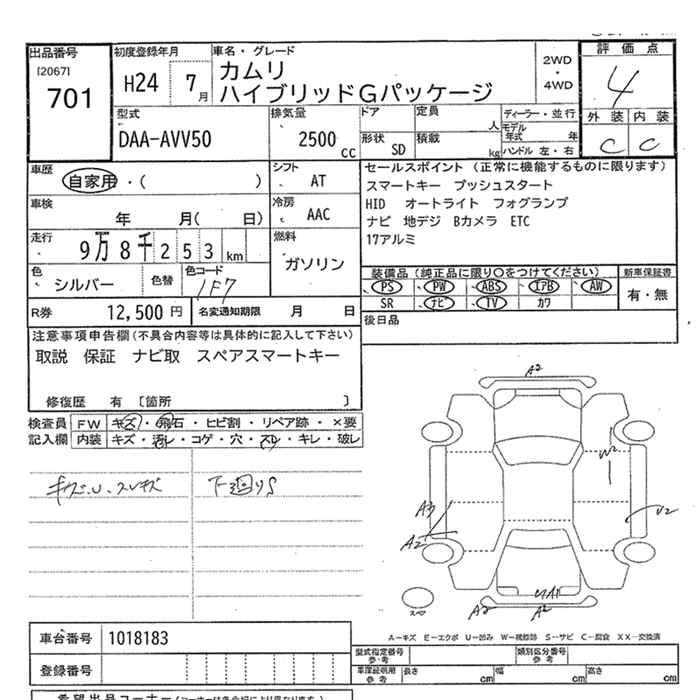 出品番号
[2067]
701
初度登録年月
H24 7月
車名・グレード
カムリ
ハイブリッドGパッケージ
2WD
・
4WD
評価点
4
外装 内装
C C
型式
DAA-AVV50
排気量
2500 CC
ドア
定員
人
形状 SD
積載
kg
ディーラー・並行
モデル年式 年
ハンドル 左・右
車歴
自家用・( )
シフト
AT
車検
年 月( 日)
冷房
AAC
走行
9万8千253km
燃料
ガソリン
色
シルバー
色替
色コード
1F7
R券 12,500円
名変通知期限 月 日
セールスポイント (正常に機能するものに限ります)
スマートキー プッシュスタート
HID オートライト フォグランプ
ナビ 地デジ Bカメラ ETC
17アルミ
装備品(純正品に限り○をつけてください)
新車保証書
PS PW ABS エアB AW
SR ナビ TV カワ
有・無
後日品
注意事項申告欄(不具合内容等は具体的に記入して下さい)
取説 保証 ナビ取 スペアスマートキー
修復歴 有 〔箇所 〕
検査員 FW キズ・飛石・ヒビ割・リペア跡・×要
記入欄 内装 キズ・汚レ・コゲ・穴・スレ・キレ・破レ
キズ.U.スレキズ
下廻りS
A2
W2
A3
A2
U2
A2
A2
スペア
A-キズ E-エクボ U-凹み W-補修跡 S-サビ C-腐食 XX-交換済
車台番号 1018183
登録番号
型式指定番号
参考
類別区分番号
参考
車庫証明用
参考
長さ cm 幅 cm 高さ cm
希望出品コーナー